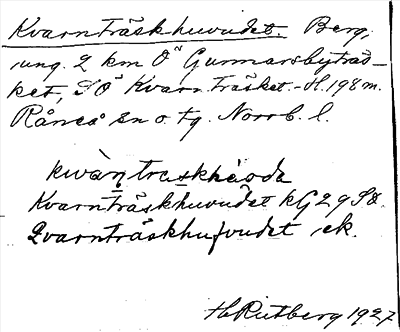 Kvarnträskhuvudet. Berg,
ung. 2 km O" Gunnarsbyträs-
ket, SO" Kvarnträsket. - H. 198 m.
Råneå sn o. tg. Norrb. l.
kwàṇtraskhäoda
Kvarnträskhuvudet kG29SO.
Qvarnträskhufvudet ek.
H. Rutberg 1927